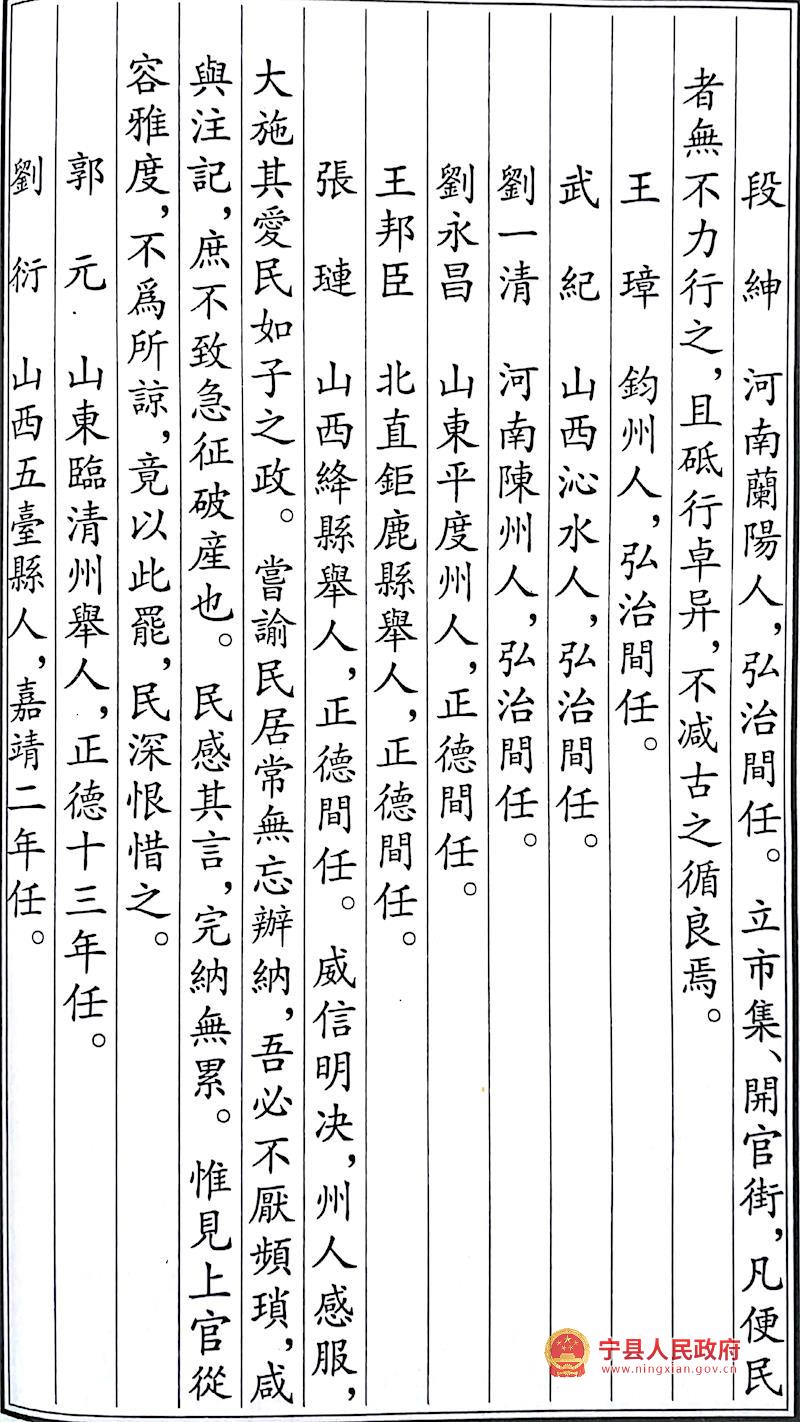 段紳 河南蘭陽人，弘治間任。立市集、開官街，凡便民
者無不力行之，且砥行卓异，不减古之循良焉。
王璋 鈞州人，弘治間任。
武紀 山西沁水人，弘治間任。
劉一清 河南陳州人，弘治間任。
劉永昌 山東平度州人，正德間任。
王邦臣 北直鉅鹿縣舉人，正德間任。
張璉 山西絳縣舉人，正德間任。威信明决，州人感服，
大施其愛民如子之政。嘗諭民居常無忘辦納，吾必不厭頻瑣，咸
與注記，庶不致急征破産也。民感其言，完納無累。惟見上官從
容雅度，不爲所諒，竟以此罷，民深恨惜之。
郭元 山東臨清州舉人，正德十三年任。
劉衍 山西五臺縣人，嘉靖二年任。
宁县人民政府
www.ningxian.gov.cn